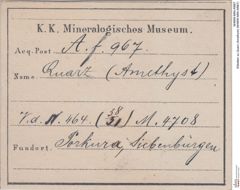 K. K. Mineralogisches Museum.
Acq. Post A. f. 967.
Name Quarz (Amethyst)
V. d. N. 464. (58/31) M. 4708
Fundort. Porkura, Siebenbürgen